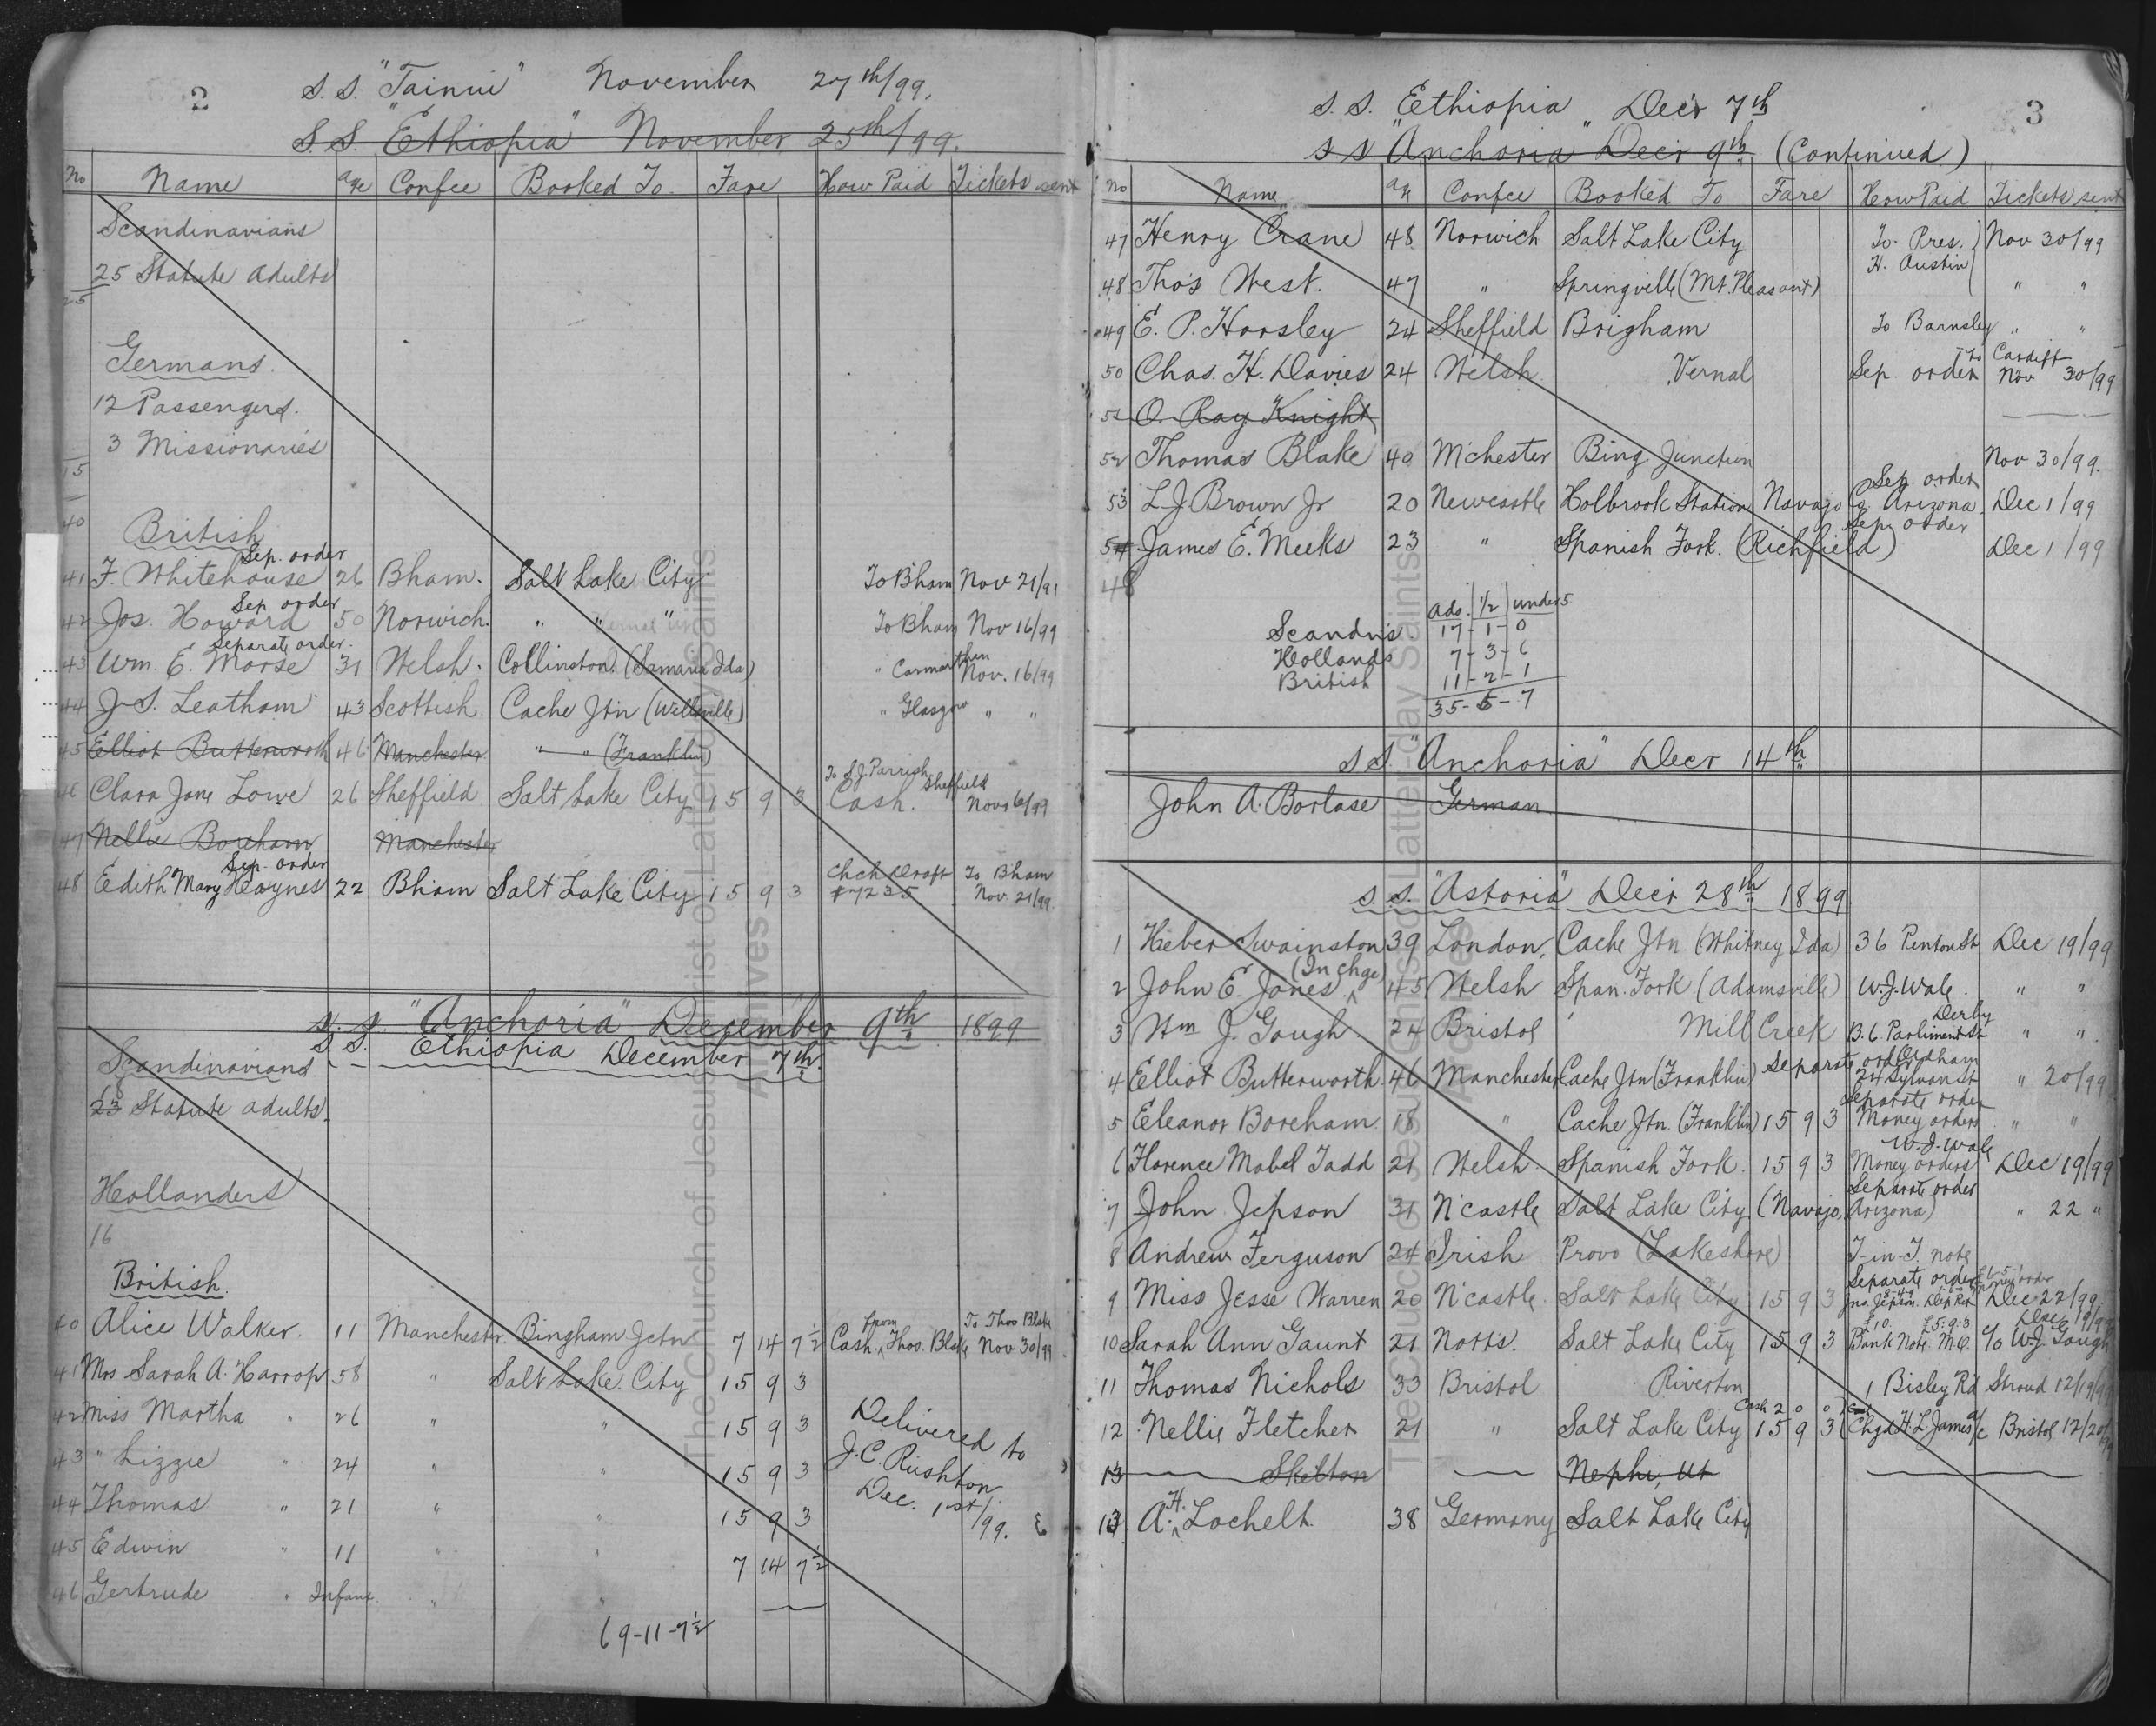 2
S.S. "Tainui" November 27th/99.
S.S. "Ethiopia" November 25th/99.
No Name age Confce Booked To Fare How Paid Tickets sent
Scandinavians
25 Statute adults
25
Germans.
12 Passengers.
3 Missionaries
15
40
British
Sep. order
41 F. Whitehouse 26 Bham. Salt Lake City To B'ham Nov 21/99
Sep. order
42 Jos. Howard 50 Norwich. " " To Bham Nov 16/99
Separate order.
43 Wm. E. Morse 31 Welsh. Collinston (Samaria Ida) " Carmarthen Nov. 16/99
44 J. S. Leatham 43 Scottish Cache Jtn (Wellsville) " Glasgow " "
45 Elliot Butterworth 46 Manchester " " (Franklin)
To S.J. Parrish Sheffield
46 Clara Jane Lowe 26 Sheffield Salt Lake City 15 9 3 Cash. Nov 16/99
47 Nellie Boreham Manchester
Sep. order
48 Edith Mary Haynes 22 Bham Salt Lake City 15 9 3 Chch Draft #7235 To Bham Nov. 21/99.
S.S. "Anchoria" December 9th 1899
S.S. Ethiopia December 7th.
Scandinavians
23 Statute adults.
Hollanders
16
British.
40 Alice Walker. 11 Manchestr. Bingham Jctn 7 14 7½ Cash from Thos. Blake To Thos Blake Nov 30/99
41 Mrs Sarah A. Harrop 58 " Salt Lake City 15 9 3
42 Miss Martha " 26 " " 15 9 3
43 " Lizzie " 24 " " 15 9 3
44 Thomas " 21 " " 15 9 3
45 Edwin " 11 " " 7 14 7½
46 Gertrude " Infant "
Delivered to
J.C. Rushton
Dec. 1st/99.
69-11-7½
3
S.S. "Ethiopia" Dec'r 7th
S.S. "Anchoria" Dec'r 9th (Continued)
No Name age Confce Booked To Fare How Paid Tickets sent
47 Henry Crane 48 Norwich Salt Lake City To Pres. H. Austin Nov 30/99
48 Thos West. 47 " Springville (Mt. Pleasant) " "
49 E. P. Horsley 24 Sheffield Brigham To Barnsley " "
50 Chas. H. Davies 24 Welsh Vernal Sep. order To Cardiff Nov 30/99
51 O. Ray Knight
52 Thomas Blake 40 M'chester Bing. Junction Nov 30/99.
Sep. order
53 L J Brown Jr 20 Newcastle Holbrook Station Navajo Co. Arizona. Dec 1/99
Sep. order
54 James E. Meeks 23 " Spanish Fork. (Richfield) Dec 1/99
48
Ads. ½ under 5
Scandns 17-1-0
Hollands 7-3-6
British 11-2-1
35-6-7
S.S. "Anchoria" Decr 14th
John A. Borlase German
S.S. "Astoria" Dec'r 28th 1899
1 Heber Swainston 39 London, Cache Jtn (Whitney Ida) 36 Penton St Dec 19/99
2 John E. Jones (In chge) 45 Welsh Span. Fork (Adamsville) W.J. Wale. " "
3 Wm J. Gough. 24 Bristol Mill Creek B. 6. Parliment St Derby " "
4 Elliot Butterworth 46 Manchester Cache Jtn (Franklin) Separate order Oldham 24 Sylvan St " 20/99
5 Eleanor Boreham 18 " Cache Jtn. (Franklin) 15 9 3 Separate order Money orders " "
6 Florence Mabel Tadd 21 Welsh. Spanish Fork. 15 9 3 W.J. Wale Money orders Dec 19/99
7 John Jepson 31 N'castle Salt Lake City (Navajo, Arizona) Separate order " 22 "
8 Andrew Ferguson 24 Irish Provo (Lakeshore) T-in-T. note
9 Miss Jesse Warren 20 N'castle Salt Lake City 15 9 3 Separate order Jno. Jepson. Dec 22/99.
10 Sarah Ann Gaunt 21 Notts. Salt Lake City 15 9 3 £10. £5.9.3 Bank Note. M.O. Dec 19/99 c/o W.J. Gough
11 Thomas Nichols 33 Bristol Riverton 1 Bisley Rd Stroud 12/19/99
12 Nellie Fletcher 21 " Salt Lake City 15 9 3 Chgd H. L. James a/c Bristol 12/20/99
13 Skelton Nephi, Ut
13 A. H. Lochelt. 38 Germany Salt Lake City
The Church of Jesus Christ of Latter-day Saints
Archives
The Church of Jesus Christ of Latter-day Saints
Archives